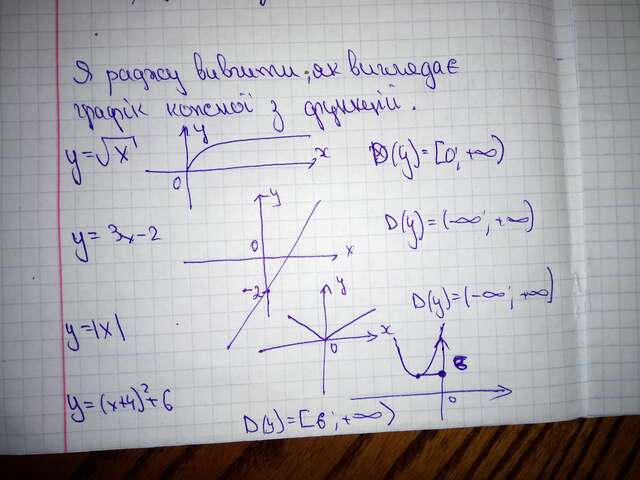 Я раджу вивчити, як виглядає
графік кожної з функцій.
y=√x y x 0 D(y)=[0;+∞)
y=3x-2 y 0 x -2 D(y)=(-∞;+∞)
y=|x| y x 0 D(y)=(-∞;+∞)
y=(x+4)²+6 6 0 D(y)=[6;+∞)